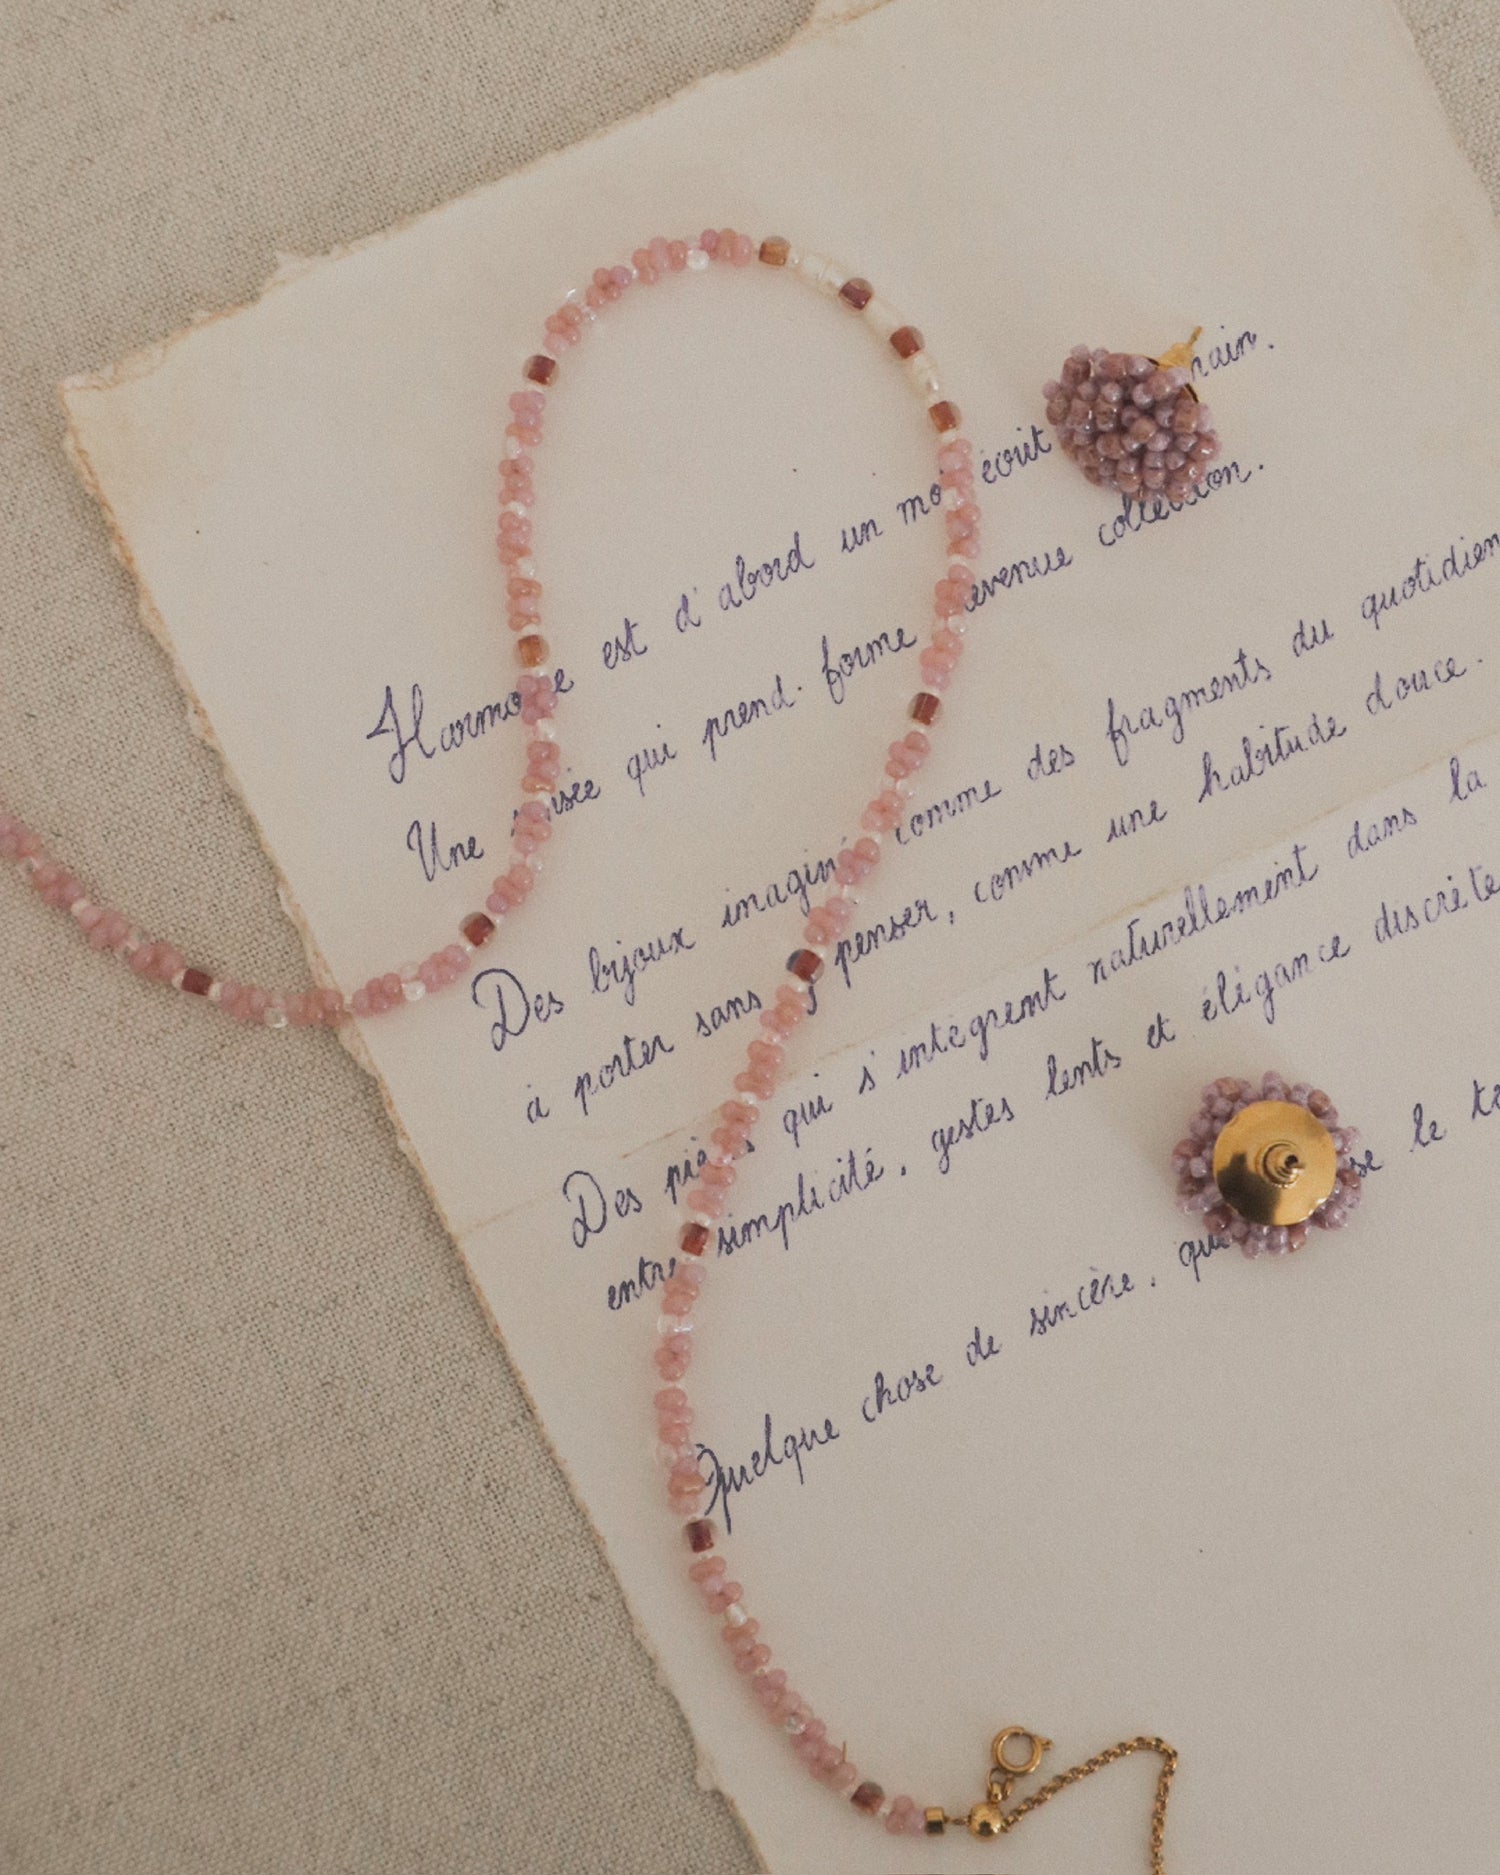 Harmonie est d'abord un mot écrit main.
Une pensée qui prend. forme devenue collection.
Des bijoux imaginés comme des fragments du quotidien
à porter sans y penser, comme une habitude douce.
Des pièces qui s'intègrent naturellement dans la
entre simplicité, gestes lents et élégance discrète
Quelque chose de sincère, qui le